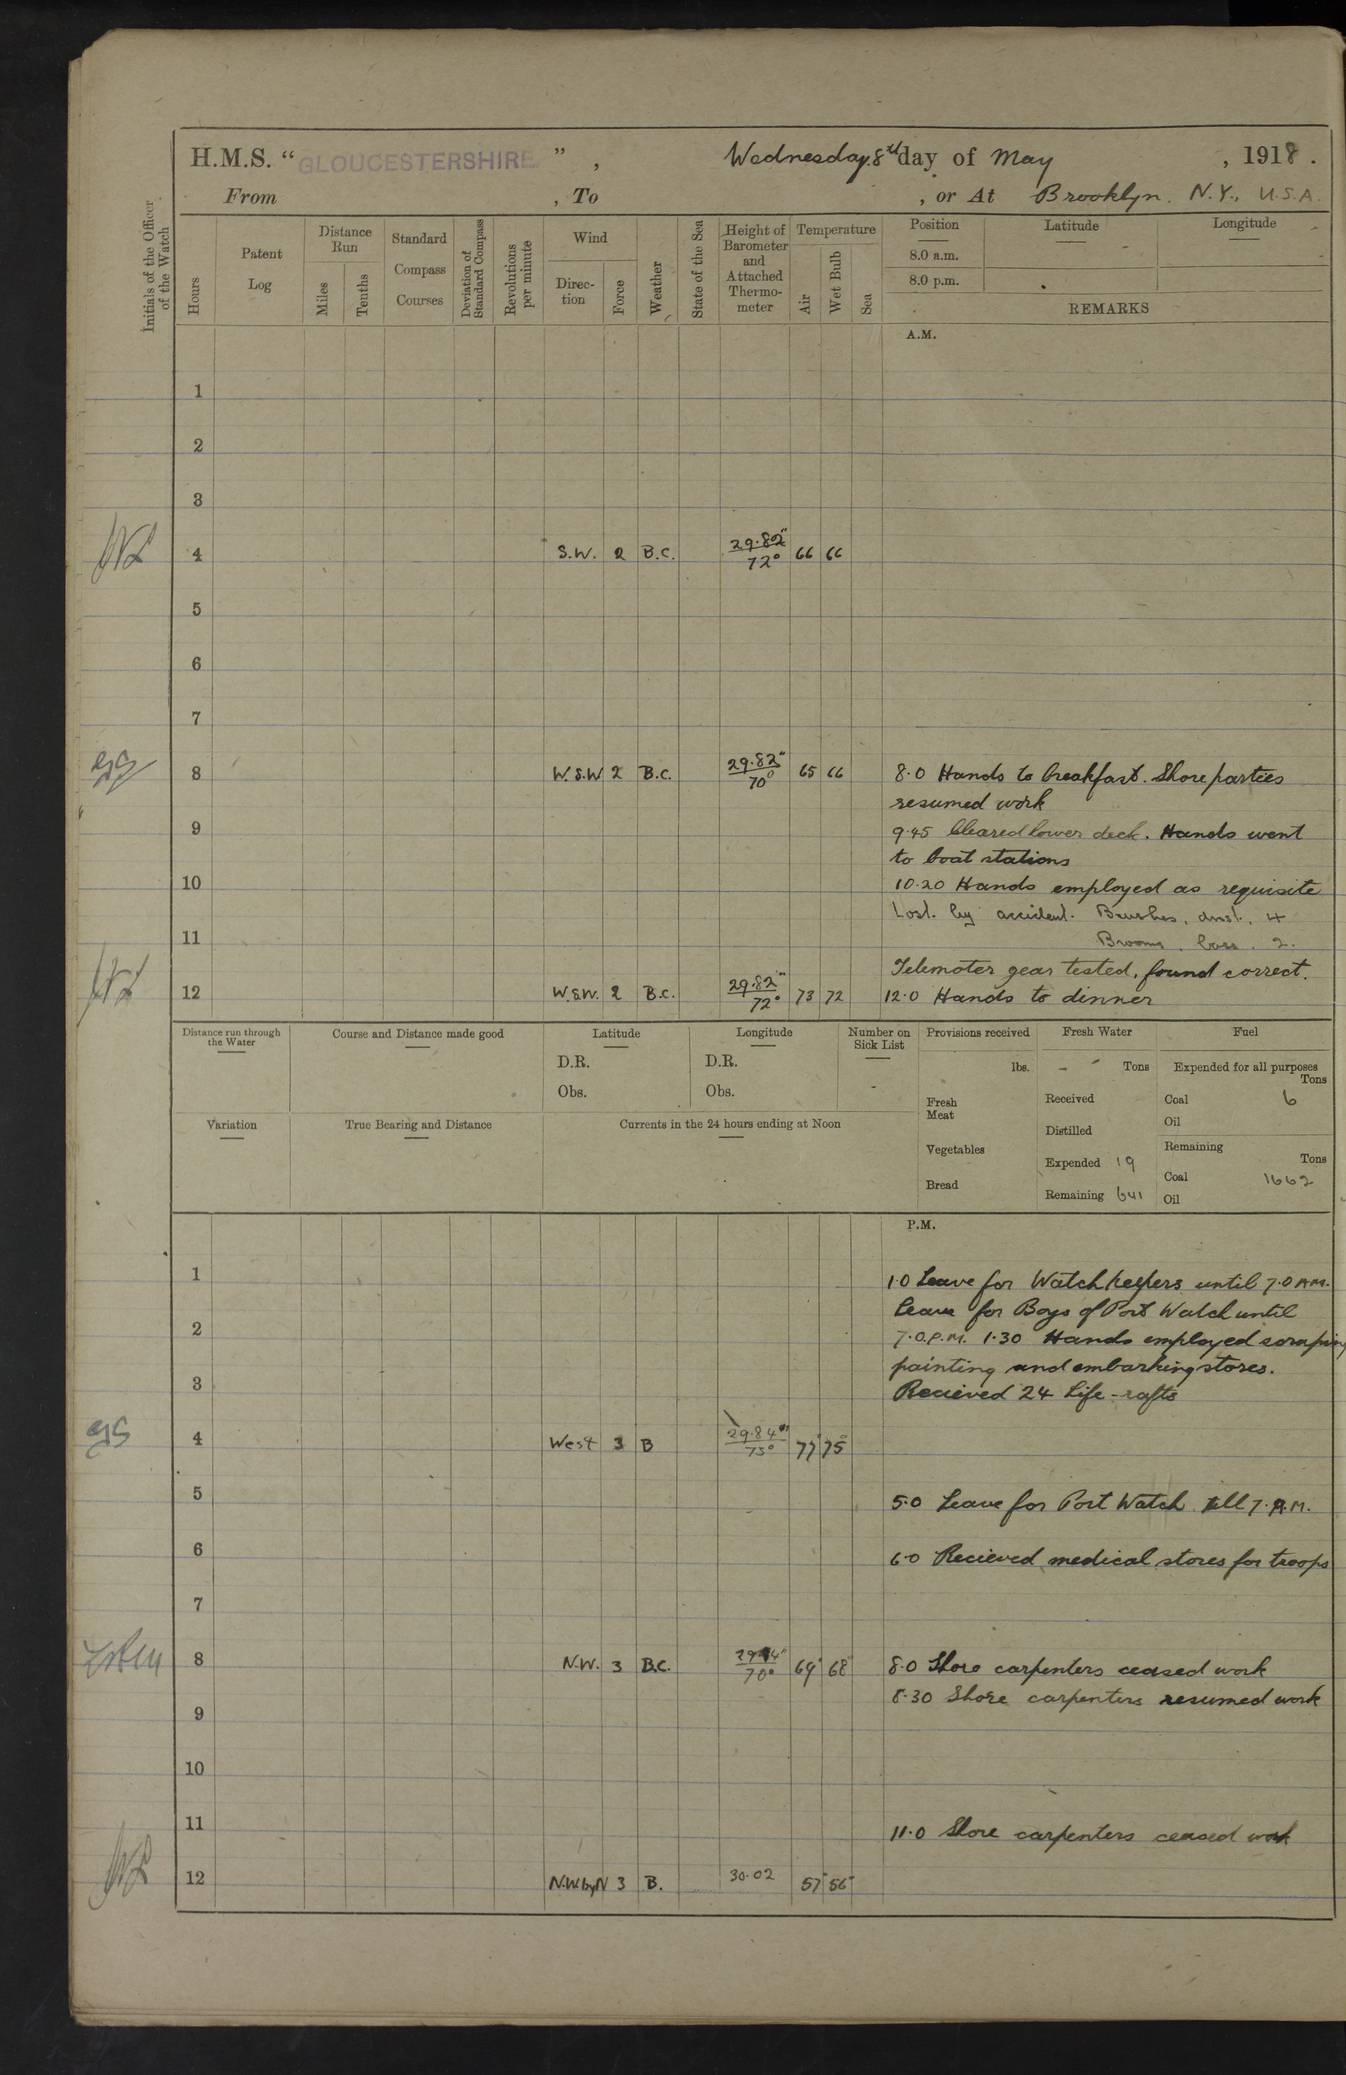 H.M.S. “GLOUCESTERSHIRE” , Wednesday. 8th day of May , 1918.
From , To , or At Brooklyn. N.Y., U.S.A.
Initials of the Officer of the Watch
Hours
Patent Log
Distance Run
Miles
Tenths
Standard Compass Courses
Deviation of Standard Compass
Revolutions per minute
Wind
Direc-tion
Force
Weather
State of the Sea
Height of Barometer and Attached Thermo-meter
Temperature
Air
Wet Bulb
Sea
Position
Latitude
Longitude
8.0 a.m.
8.0 p.m.
REMARKS
A.M.
1
2
3
4 S.W. 2 B.C. 29.82" 72° 66 66
5
6
7
8 W.S.W 2 B.C. 29.82" 70° 65 66 8.0 Hands to breakfast. Shore parties
resumed work
9 9.45 Cleared lower deck. Hands went
to boat stations
10 10.20 Hands employed as requisite
Lost. by accident. Brushes, dust, 4
11 Brooms, bass. 2.
Telemoter gear tested, found correct.
12 W.S.W. 2 B.C. 29.82" 72° 73 72 12.0 Hands to dinner
Distance run through the Water
Course and Distance made good
Latitude
D.R.
Obs.
Longitude
D.R.
Obs.
Number on Sick List
Provisions received
lbs.
Fresh Meat
Vegetables
Bread
Fresh Water
Tons
Received
Distilled
Expended 19
Remaining 641
Fuel
Expended for all purposes
Tons
Coal 6
Oil
Remaining
Tons
Coal 1662
Oil
Variation
True Bearing and Distance
Currents in the 24 hours ending at Noon
P.M.
1 1.0 Leave for Watchkeepers until 7.0 AM.
Leave for Boys of Port Watch until
2 7.0.P.M. 1.30 Hands employed scraping
painting and embarking stores.
3 Recieved 24 Life-rafts
4 West 3 B 29.84" 73° 77° 75°
5 5.0 Leave for Port Watch till 7.A.M.
6 6.0 Recieved medical stores for troops
7
8 N.W. 3 B.C. 70° 69° 68 8.0 Shore carpenters ceased work
8.30 Shore carpenters resumed work
9
10
11 11.0 Shore carpenters ceased work
12 N.W.byN 3 B. 30.02 57° 56°